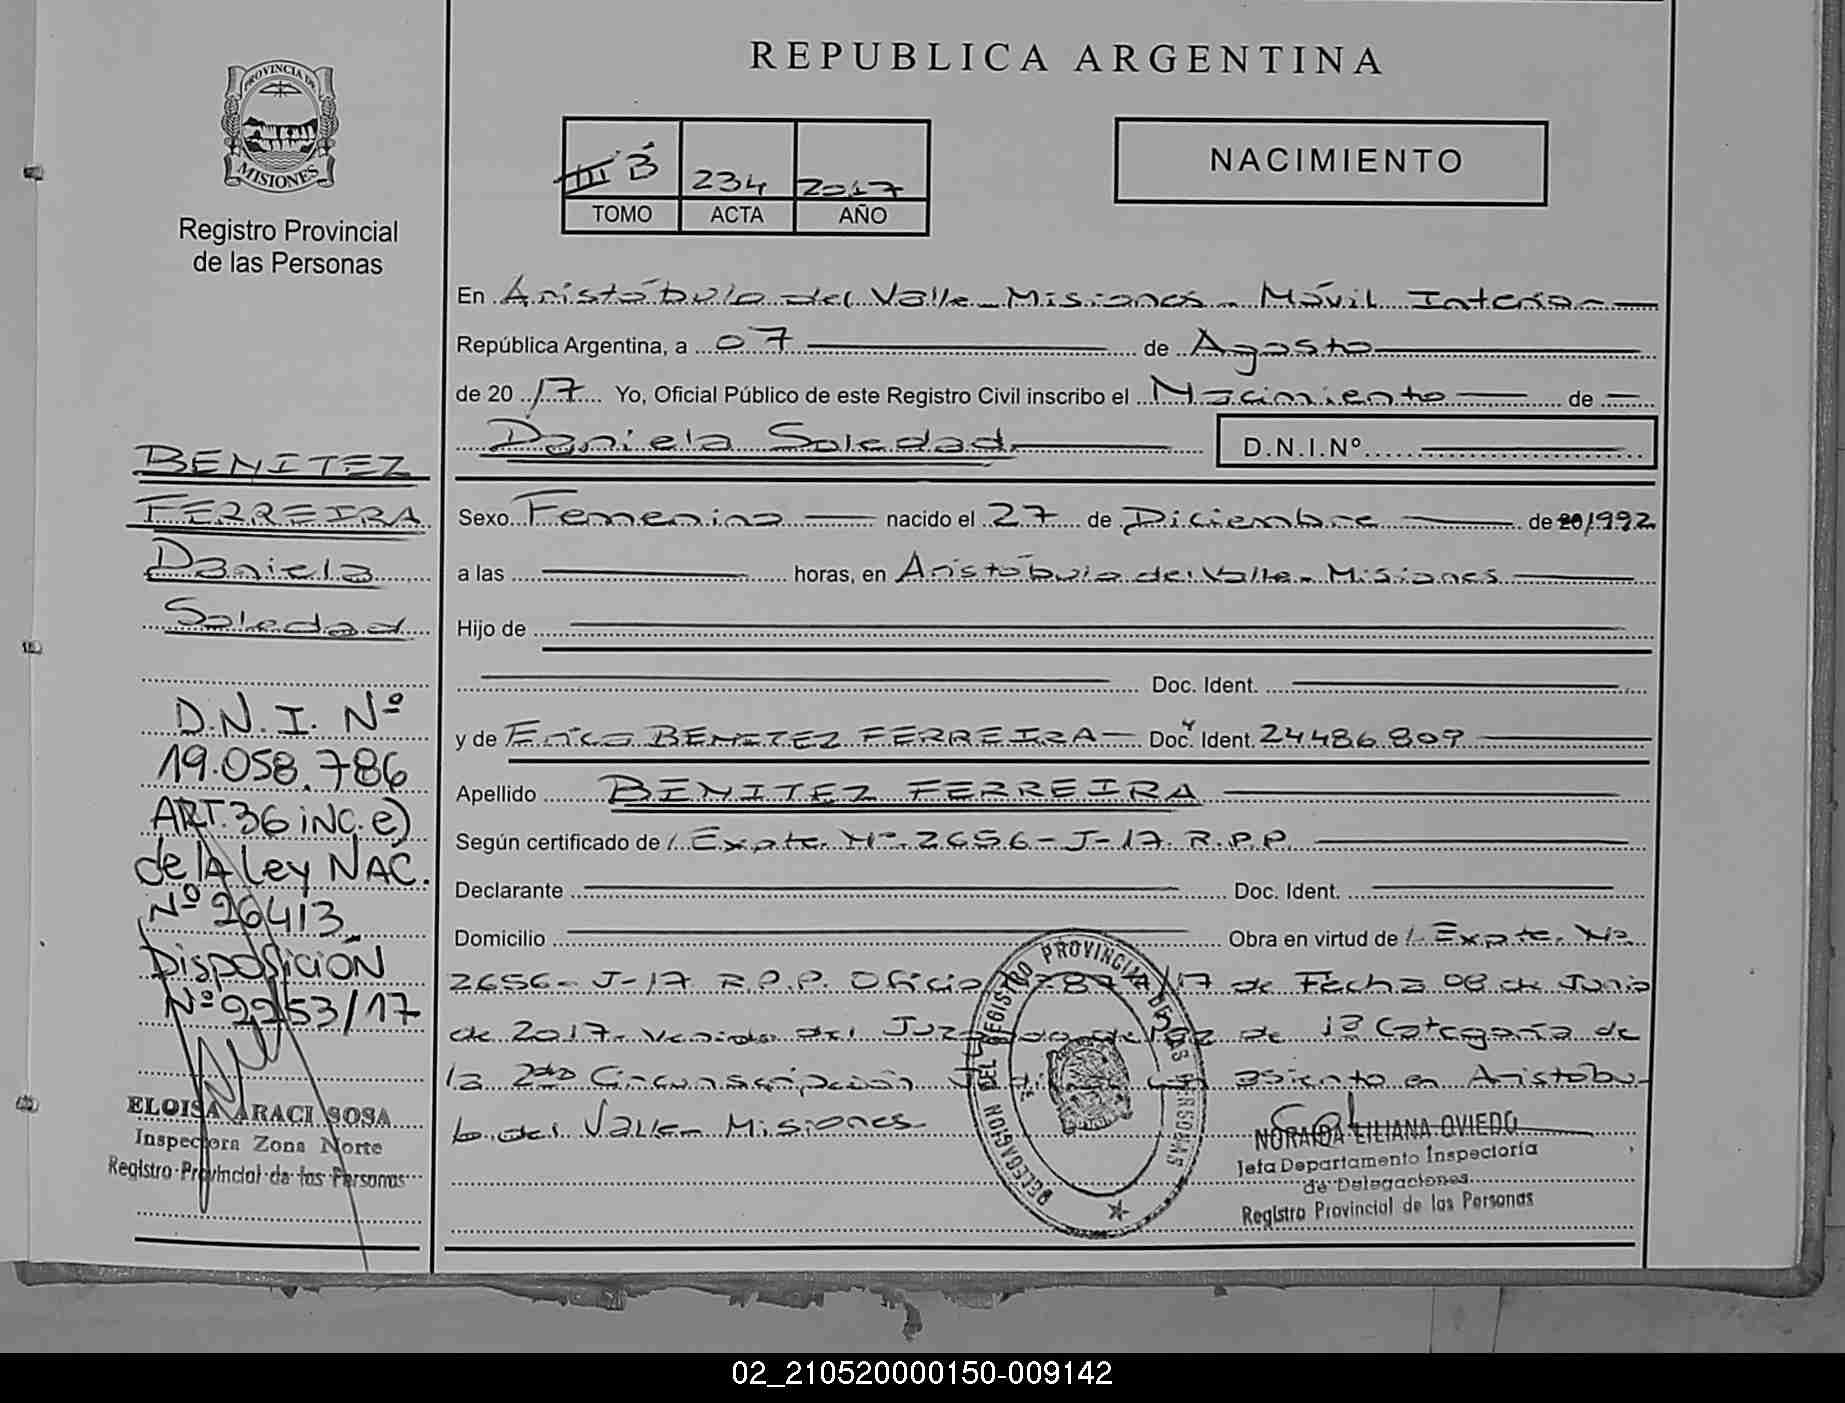 REPUBLICA ARGENTINA
PROVINCIA DE
MISIONES
Registro Provincial
de las Personas
III B 234 2017
TOMO ACTA AÑO
NACIMIENTO
En Aristóbulo del Valle - Misiones - Móvil Interior
República Argentina, a 07 de Agosto
de 20 17 Yo, Oficial Público de este Registro Civil inscribo el Nacimiento de
Daniela Soledad D.N.I.Nº
Sexo Femenino nacido el 27 de Diciembre de 1992
a las horas, en Aristóbulo del Valle - Misiones
Hijo de
Doc. Ident.
y de BENITEZ FERREIRA Doc. Ident. 24486.809
Apellido BENITEZ FERREIRA
Según certificado de Expte. Nº 2656-J-17 R.P.P.
Declarante Doc. Ident.
Domicilio Obra en virtud de Expte. Nº
2656-J-17 R.P.P. Oficio /17 de Fecha 08 de Junio
de 2017. Venido del Juzgado de Paz de 1ª Categoría de
la 2da Circunscripción asiento en Aristóbu-
lo del Valle - Misiones
DELEGACION DEL REGISTRO PROVINCIAL DE LAS PERSONAS
NORAIDA LILIANA OVIEDO
Jefa Departamento Inspectoria
de Delegaciones
Registro Provincial de las Personas
BENITEZ
FERREIRA
Daniela
Soledad
D.N.I. Nº
19.058.786
ART.36 iNC.e)
de lA Ley NAC.
Nº 26413
DisposiciÓN
Nº 2253/17
ELOISA ARACI SOSA
Inspectora Zona Norte
Registro Provincial de las Personas
02_210520000150-009142